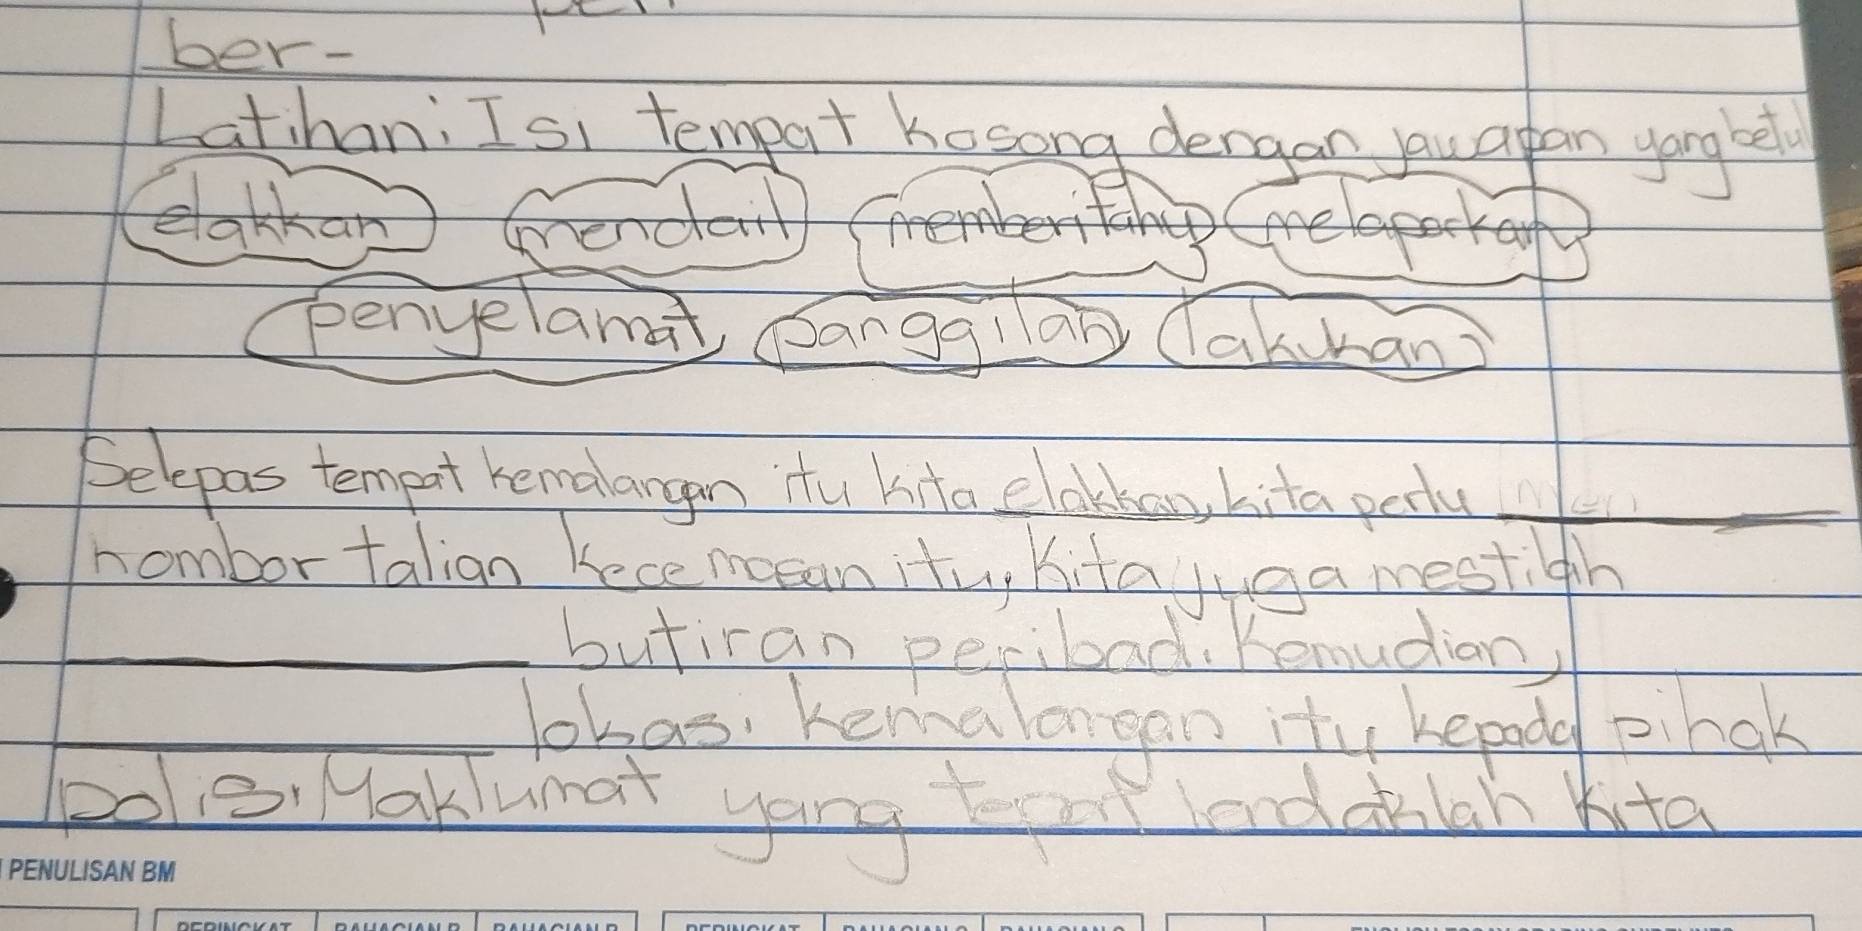 ber-
Latihan: Isi tempat kosong dengan jawapan yang betul
elakkan mendail memberitahu melaporkan
penyelamat, panggilan, lakukan
Selepas tempat kemalangan itu kita elakkan, kita perlu
nombor talian kecemasan itu, kita juga mestilah
butiran peribadi. Kemudian,
lokasi kemalangan itu kepada pihak
polis. Maklumat yang tepat hendaklah kita
PENULISAN BM